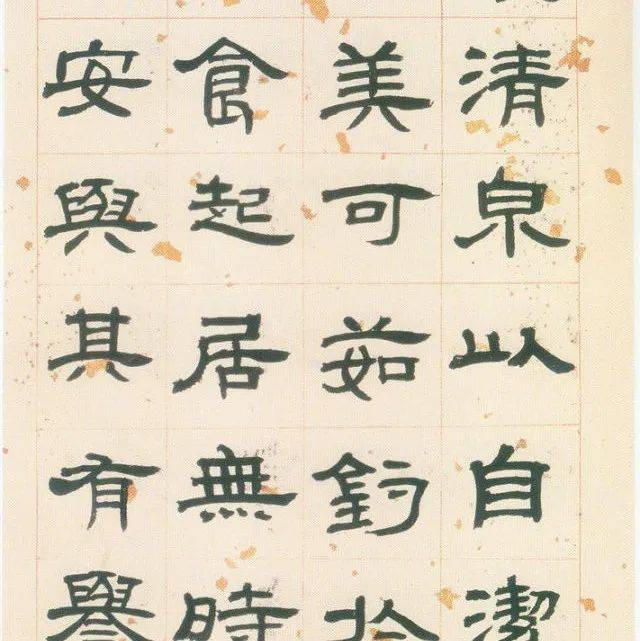 清泉以自潔
美可茹釣於
食起居無時
安與其有譽